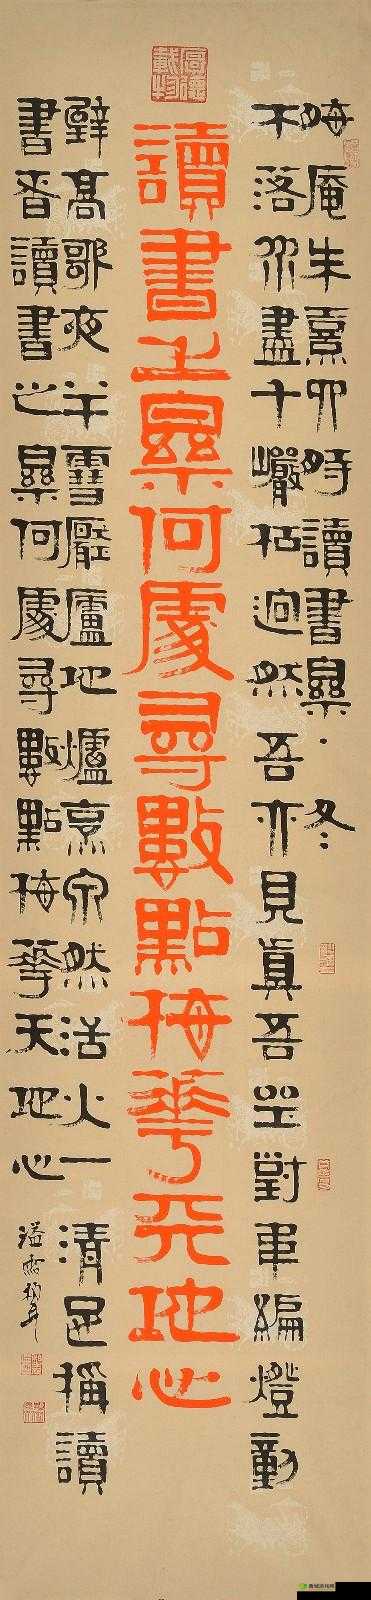 厚德載物
晦庵朱熹四時讀書樂·冬
木落水盡千巖枯迥然吾亦見眞吾坐對韋編燈動
讀書之樂何處尋數點梅華天地心
壁高歌夜半雪壓廬地爐烹泉然活火一清足稱讀
書者讀書之樂何處尋數點梅華天地心